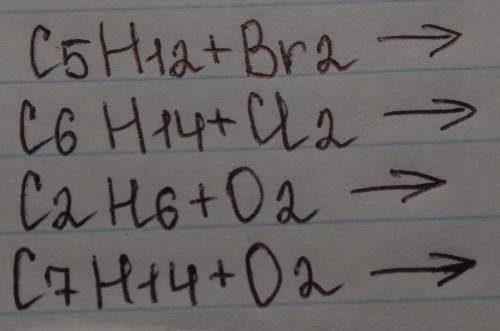 C5H12+Br2 →
C6H14+Cl2 →
C2H6+O2 →
C7H14+O2 →